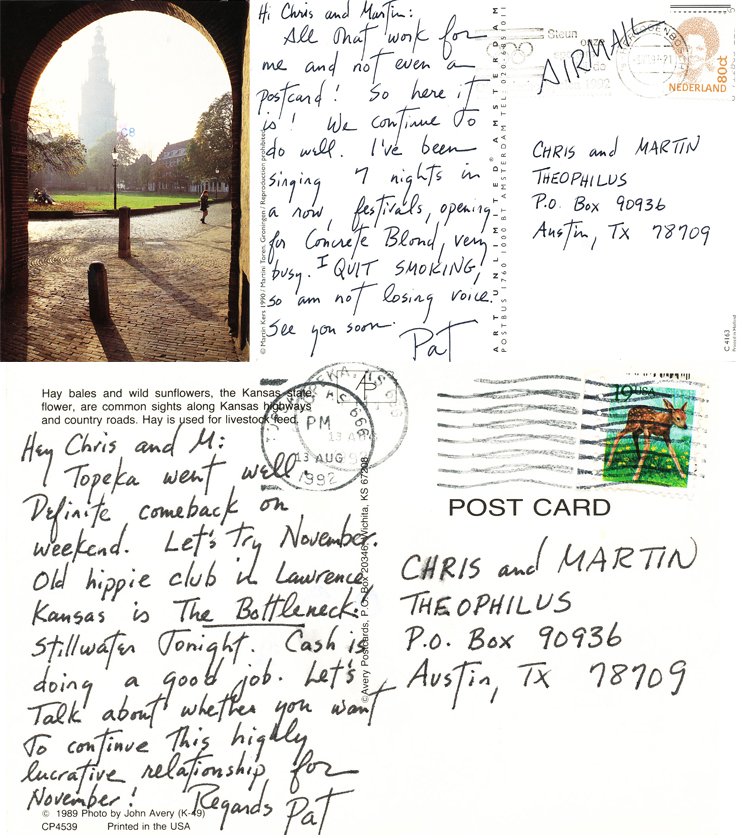 C8
© Martin Kers 1990 / Martini Toren, Groningen / Reproduction prohibited
Hi Chris and Martin:
All that work for
me and not even a
postcard! So here it
is! We continue to
do well. I've been
singing 7 nights in
a row, festivals, opening
for Concrete Blond, very
busy. I QUIT SMOKING,
so am not losing voice.
See you soon.
Pat
ART UNLIMITED® AMSTERDAM
POSTBUS 1760 1000 BT AMSTERDAM TEL: 020-
Steun
onze
1992
AIRMAIL
80ct
NEDERLAND
CHRIS and MARTIN
THEOPHILUS
P.O. Box 90936
Austin, TX 78709
C 4163
Hay bales and wild sunflowers, the Kansas state
flower, are common sights along Kansas highways
and country roads. Hay is used for livestock feed.
Hey Chris and M:
Topeka went well.
Definite comeback on
weekend. Let's Try November.
Old hippie club in Lawrence
Kansas is The Bottleneck.
Stillwater Tonight. Cash is
doing a good job. Let's
Talk about whether you want
To continue This highly
lucrative relationship for
November!
Regards Pat
© 1989 Photo by John Avery (K-49)
CP4539 Printed in the USA
© Avery Postcards, P.O. Box 20346, Wichita, KS 67208
KS 666
PM
13 AUG
1992
19 USA
POST CARD
CHRIS and MARTIN
THEOPHILUS
P.O. Box 90936
Austin, TX 78709